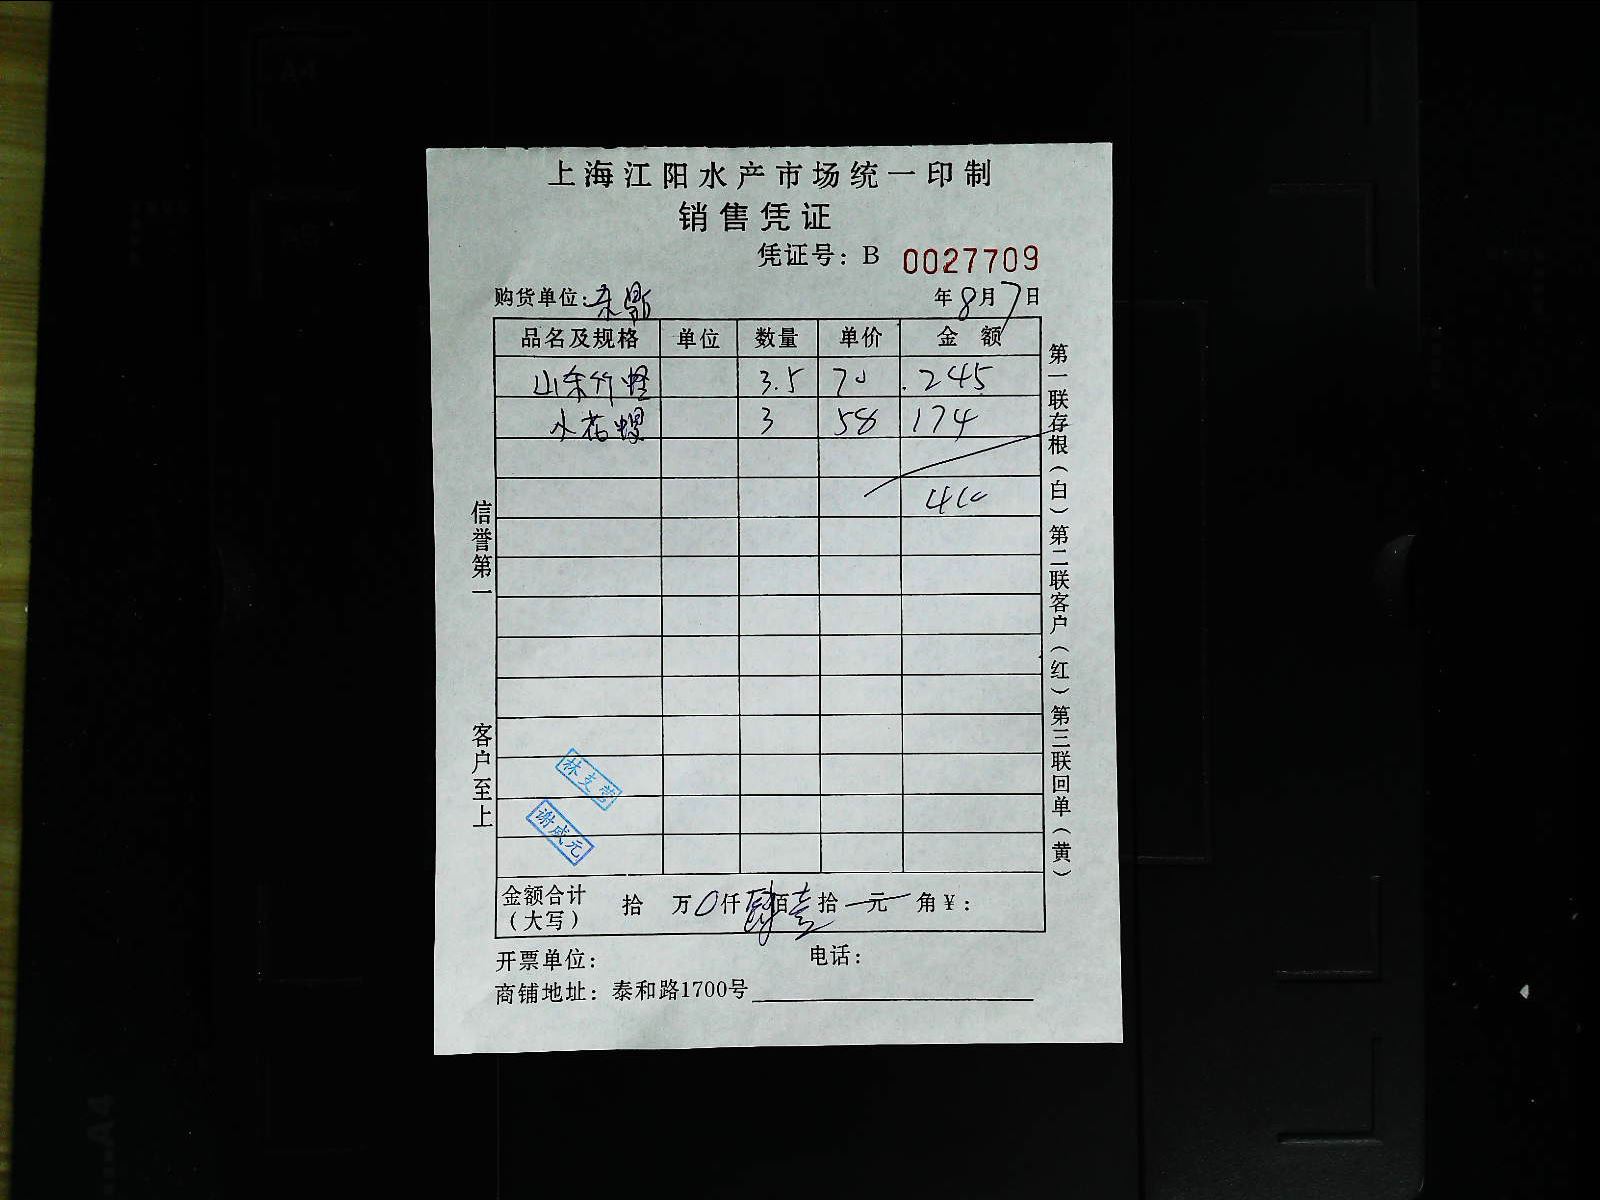 上海江阳水产市场统一印制
销售凭证
凭证号：B 0027709
购货单位： 年8月7日
品名及规格 单位 数量 单价 金额
山东竹蛏 3.5 70 245
水花螺 3 58 174
410
信誉第一
客户至上
第一联存根（白）第二联客户（红）第三联回单（黄）
谢咸元
金额合计（大写） 拾 万0仟肆佰壹拾 元 角¥：
开票单位： 电话：
商铺地址：泰和路1700号
A4